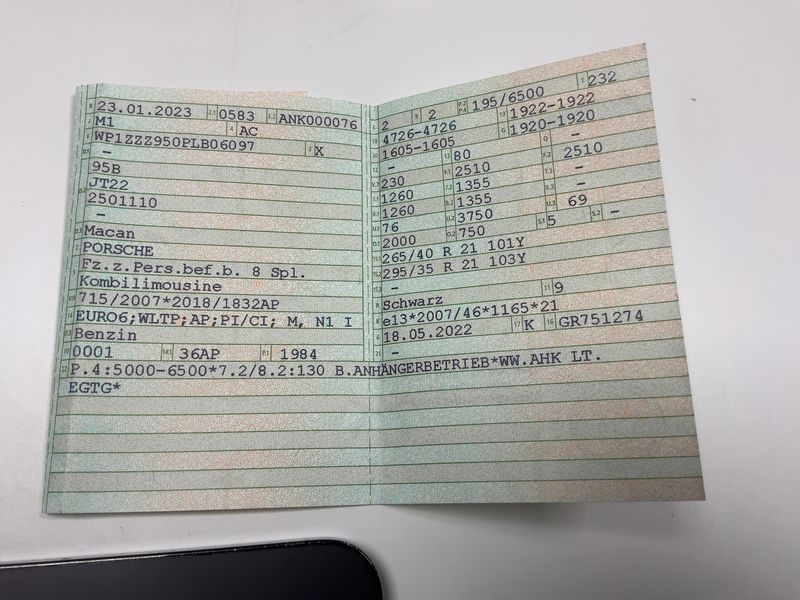 23.01.2023 0583 ANK000076
M1 AC
WP1ZZZ950PLB06097 X
-
95B
JT22
2501110
-
Macan
PORSCHE
Fz.z.Pers.bef.b. 8 Spl.
Kombilimousine
715/2007*2018/1832AP
EURO6;WLTP;AP;PI/CI; M, N1 I
Benzin
0001 36AP 1984
2 2 195/6500 232
4726-4726 1922-1922
1605-1605 1920-1920
- 80 -
230 2510 2510
1260 1355 -
1260 1355 -
76 3750 69
2000 750 5 -
265/40 R 21 101Y
295/35 R 21 103Y
-
Schwarz 9
e13*2007/46*1165*21
18.05.2022 K GR751274
-
P.4:5000-6500*7.2/8.2:130 B.ANHÄNGERBETRIEB*WW.AHK LT.
EGTG*